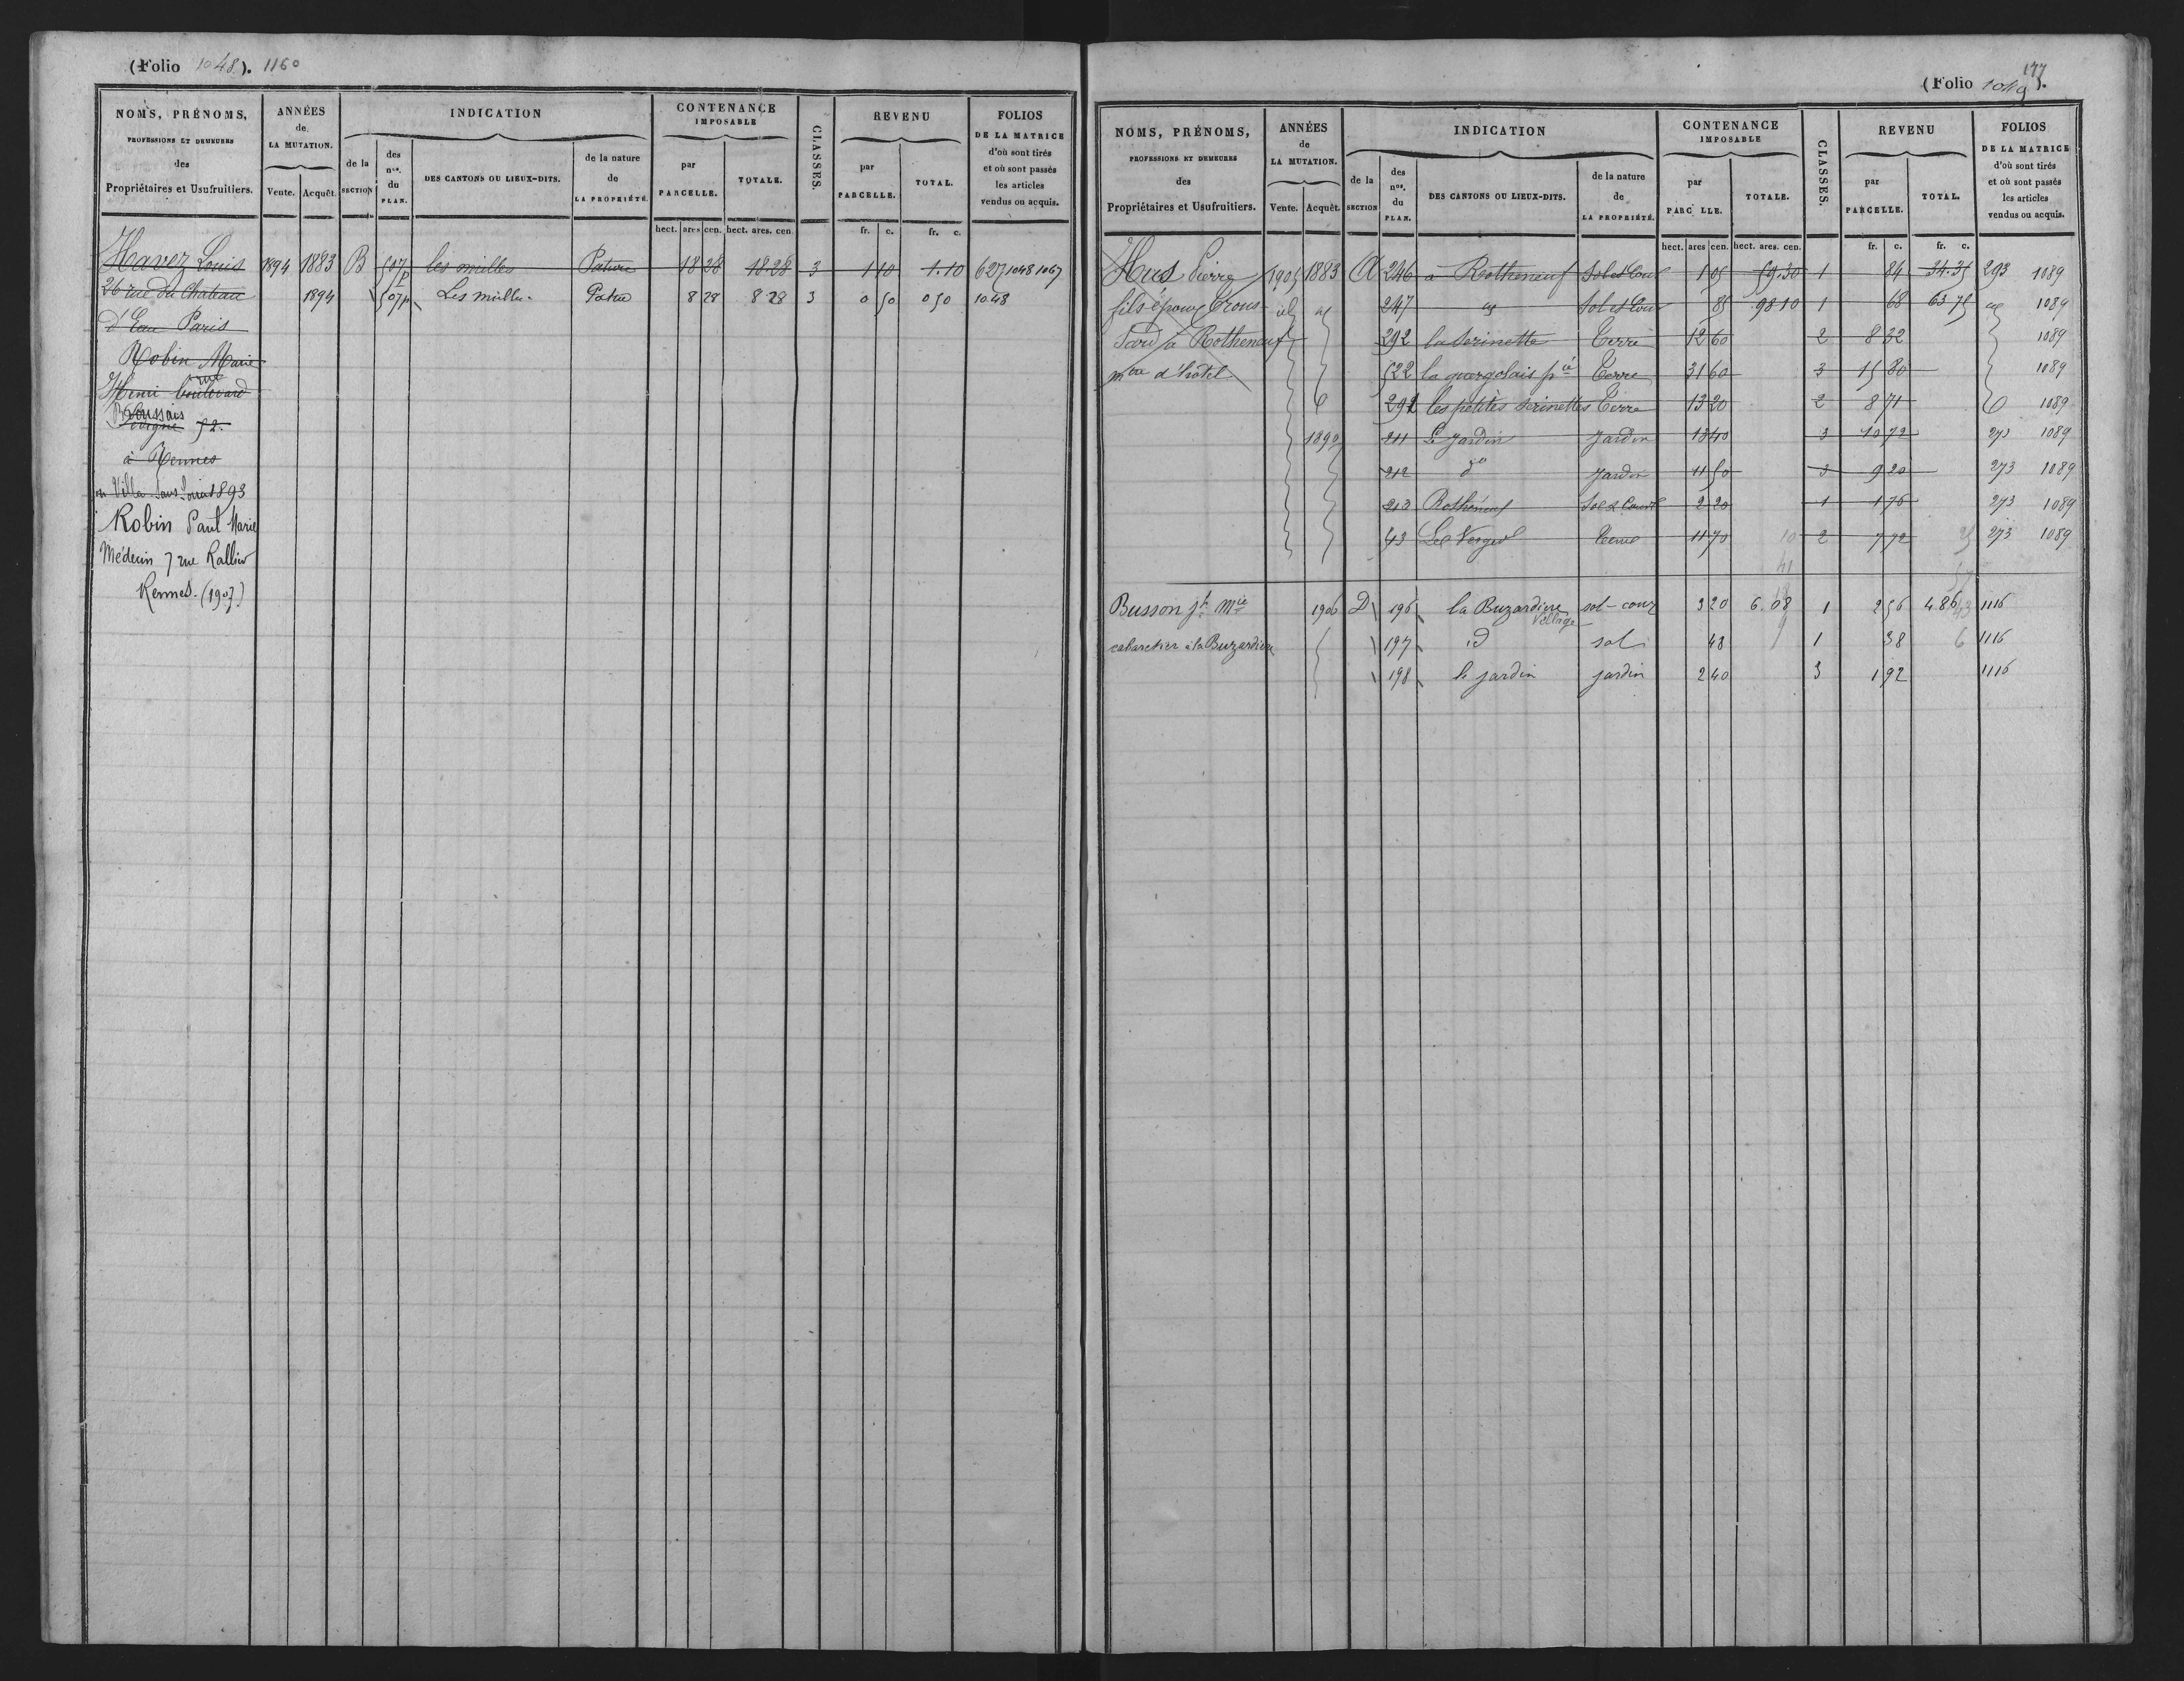 (Folio 1048). 1160
NOMS, PRÉNOMS,
PROFESSIONS ET DEMEURES
des
Propriétaires et Usufruitiers.
ANNÉES
de
LA MUTATION.
Vente. Acquêt.
INDICATION
de la
SECTION
des
nos.
du
PLAN.
DES CANTONS OU LIEUX-DITS.
de la nature
de
LA PROPRIÉTÉ.
CONTENANCE
IMPOSABLE
par
PARCELLE.
TOTALE.
CLASSES.
REVENU
par
PARCELLE.
TOTAL.
FOLIOS
DE LA MATRICE
d'où sont tirés
et où sont passés
les articles
vendus ou acquis.
hect. ares cen. hect. ares. cen. fr. c. fr. c.
Havez Louis 1894 1883 B 507p les mielles Pature 18 28 18.28 3 1 10 1.10 627 1048 1067
26 rue du Chateau 1894 507p Les mielles Pature 8 28 8 28 3 0 50 0 50 1048
d'Eau Paris
Robin Marie
rue
Henri boulevard
Sévigné 52
à Rennes
ou Villa Sans Souci 1893
Robin Paul Marie
Médecin 7 rue Rallier
Rennes. (1907)
177
(Folio 1049).
NOMS, PRÉNOMS,
PROFESSIONS ET DEMEURES
des
Propriétaires et Usufruitiers.
ANNÉES
de
LA MUTATION.
Vente. Acquêt.
INDICATION
de la
SECTION
des
nos.
du
PLAN.
DES CANTONS OU LIEUX-DITS.
de la nature
de
LA PROPRIÉTÉ.
CONTENANCE
IMPOSABLE
par
PARC LLE.
TOTALE.
CLASSES.
REVENU
par
PARCELLE.
TOTAL.
FOLIOS
DE LA MATRICE
d'où sont tirés
et où sont passés
les articles
vendus ou acquis.
hect. ares cen. hect. ares. cen. fr. c. fr. c.
Hus Pierre 1905 1883 A 246 à Rotheneuf Sol et Cour 1 05 59.30 1 84 34.35 293 1089
fils époux 247 Sol et Cour 85 98 10 1 68 63 75 1089
à Rotheneuf 292 la Serinette Terre 12 60 2 8 32 1089
mtre d'hôtel 522 Terre 31 60 3 15 80 1089
291 les petites Serinettes Terre 13 20 2 8 71 1089
1890 211 Le Jardin Jardin 13 40 3 10 72 273 1089
212 do Jardin 11 50 3 9 20 273 1089
213 Rothéneuf Sol & Cour 2 20 1 1 76 273 1089
43 Le Verger Terre 11 70 10 2 7 72 25 273 1089
Busson jh Mie 1906 D 196 la Buzardiere Village sol - cour 3 20 6.08 1 2 56 4.86 1116
cabaretier à la Buzardiere 197 id sol 48 1 38 6 1116
198 le jardin jardin 2 40 3 1 92 1116